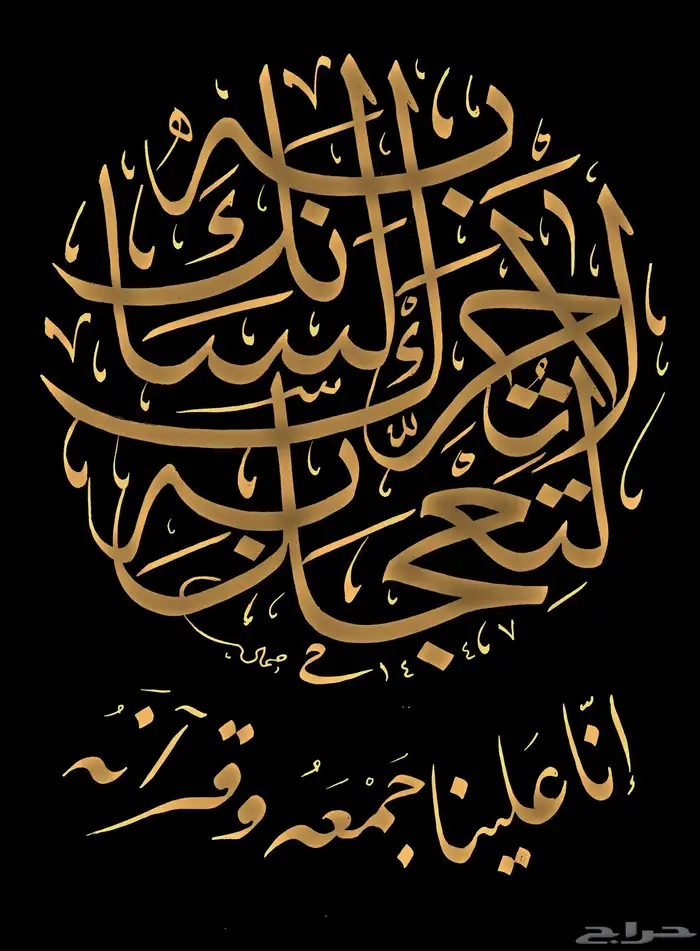 لَا تُحَرِّكْ بِهِ لِسَانَكَ
لِتَعْجَلَ بِهِ
١٤٤٧
إنّا عَلينا جَمْعَهُ وقرآنَهُ
حراج